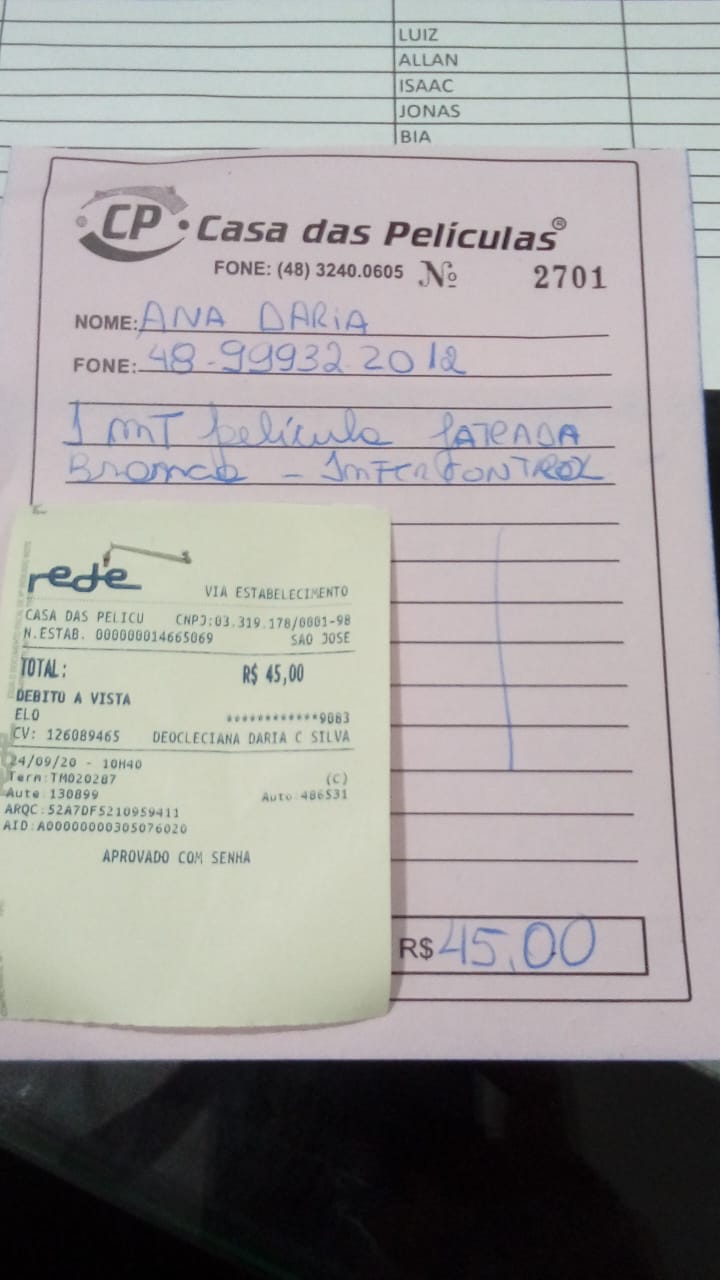 LUIZ
ALLAN
ISAAC
JONAS
BIA
CP Casa das Películas®
FONE: (48) 3240.0605 Nº 2701
NOME: ANA DARIA
FONE: 48-99932.2012
1 mT película JATEADA
Branca - INTERCONTROL
rede
VIA ESTABELECIMENTO
CASA DAS PELICU CNPJ:03.319.178/0001-98
N.ESTAB. 000000014665069 SAO JOSE
TOTAL: R$ 45,00
DEBITO A VISTA
ELO ************9083
CV: 126089465 DEOCLECIANA DARIA C SILVA
24/09/20 - 10H40
Term:TM020287 (C)
Aute:130899 Auto:486531
ARQC:52A7DF5210959411
AID:A00000000305076020
APROVADO COM SENHA
R$ 45,00